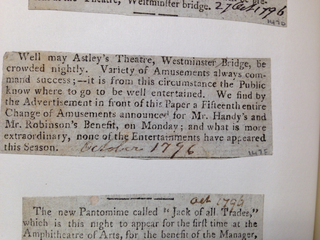 Theatre, Westminster bridge. 27 Octr 1796
1470
Well may Astley's Theatre, Westminster Bridge, be
crowded nightly. Variety of Amusements always com-
mand success;—it is from this circumstance the Public
know where to go to be well entertained. We find by
the Advertisement in front of this Paper a Fifteenth entire
Change of Amusements announced for Mr. Handy's and
Mr. Robinson's Benefit, on Monday; and what is more
extraordinary, none of the Entertainments have appeared
this Season. October 1796
Oct 1796
The new Pantomime called "Jack of all Trades,"
which is this night to appear for the first time at the
Amphitheatre of Arts, for the benefit of the Manager,